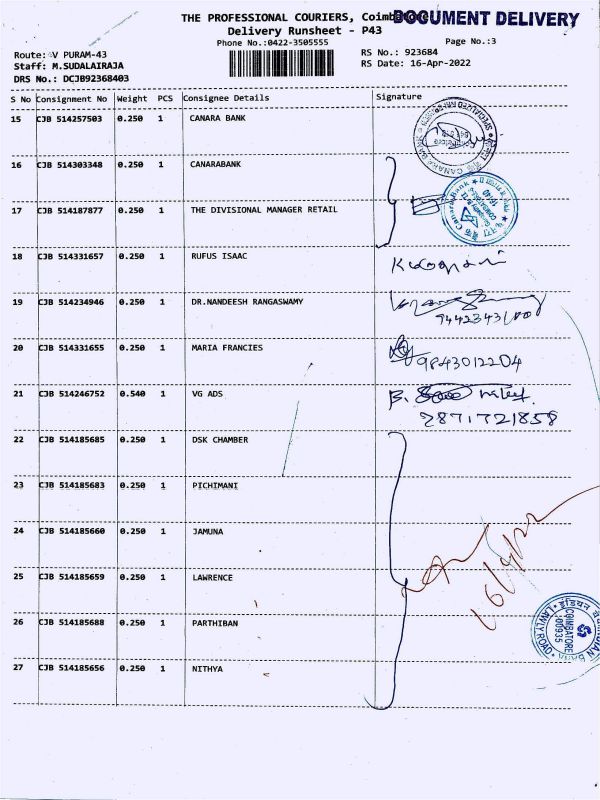 THE PROFESSIONAL COURIERS, Coimbatore
DOCUMENT DELIVERY
Delivery Runsheet - P43
Phone No.:0422-3505555
Page No.:3
Route: V PURAM-43
RS No.: 923684
Staff: M.SUDALAIRAJA
RS Date: 16-Apr-2022
DRS No.: DCJB92368403
S No Consignment No Weight PCS Consignee Details Signature
15 CJB 514257503 0.250 1 CANARA BANK
16 CJB 514303348 0.250 1 CANARABANK
17 CJB 514187877 0.250 1 THE DIVISIONAL MANAGER RETAIL
18 CJB 514331657 0.250 1 RUFUS ISAAC
19 CJB 514234946 0.250 1 DR.NANDEESH RANGASWAMY
20 CJB 514331655 0.250 1 MARIA FRANCIES
9843012204
21 CJB 514246752 0.540 1 VG ADS
22 CJB 514185685 0.250 1 DSK CHAMBER
23 CJB 514185683 0.250 1 PICHIMANI
24 CJB 514185660 0.250 1 JAMUNA
25 CJB 514185659 0.250 1 LAWRENCE
26 CJB 514185688 0.250 1 PARTHIBAN
27 CJB 514185656 0.250 1 NITHYA